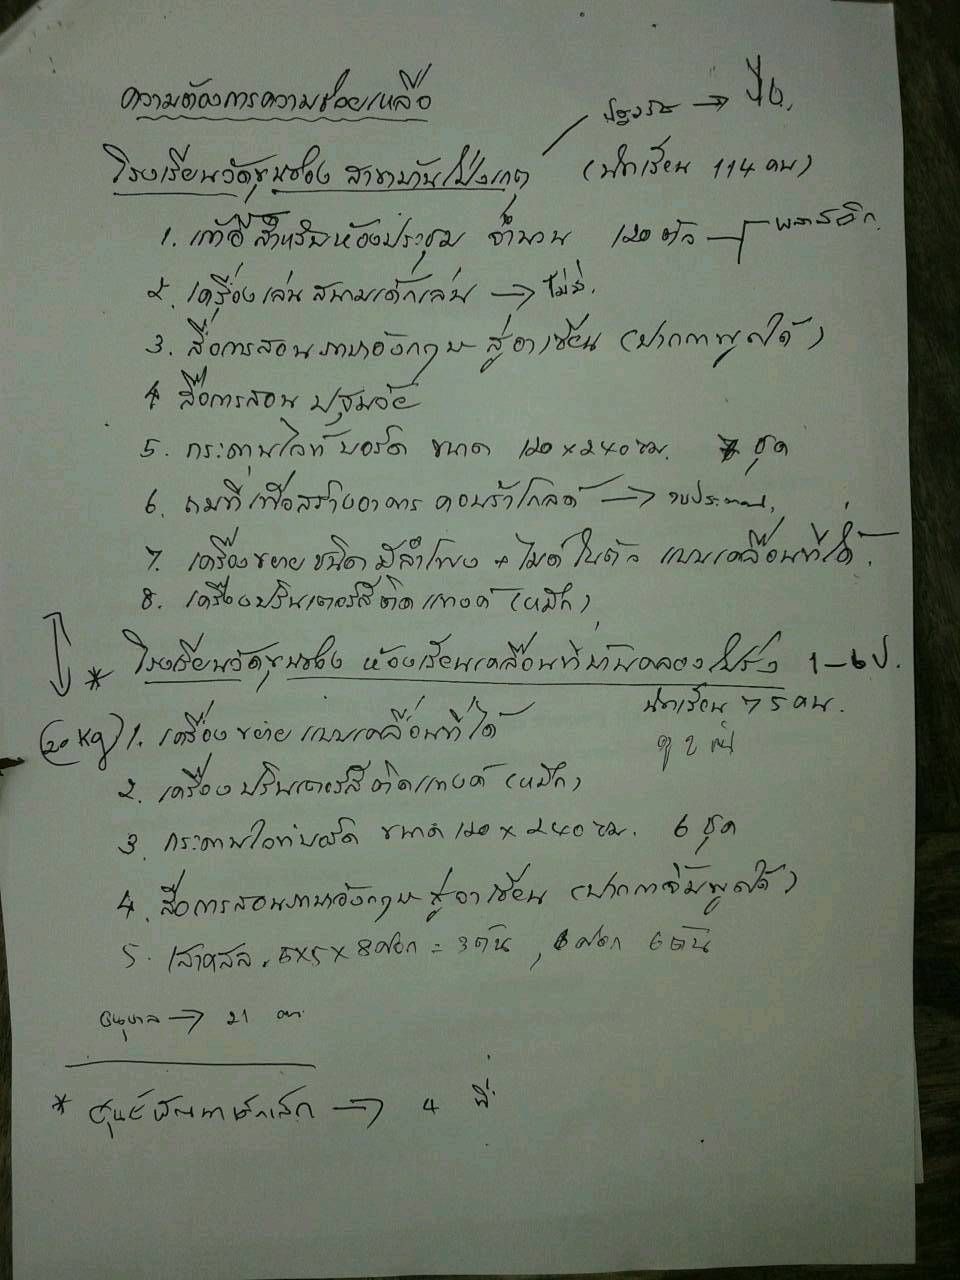 ความต้องการความช่วยเหลือ
→ ป.6
โรงเรียนวัดขุนซ่อง สาขาบ้านโป่งเกตุ (นักเรียน 114 คน)
1. เก้าอี้สำหรับห้องประชุม จำนวน 120 ตัว พลาสติก
2. เครื่องเล่นสนามเด็กเล่น → ไม่มี
3. สื่อการสอนภาษาอังกฤษ สู่อาเซียน (ปากกาพูดได้)
4 สื่อการสอน ปฐมวัย
5. กระดานไวท์บอร์ด ขนาด 120 x 240 ซม. 7 ชุด
6. ถมที่เพื่อสร้างอาคาร → งบประมาณ
7. เครื่องขยาย ชนิดมีลำโพง + ไมค์ในตัว แบบเคลื่อนที่ได้
8. เครื่องปริ้นเตอร์สีติดแทงค์ (หมึก)
* โรงเรียนวัดขุนซ่อง ห้องเรียนเคลื่อนที่บ้านคลองโป่ง 1-6 ป.
นักเรียน 75 คน.
(20 kg) 1. เครื่องขยาย แบบเคลื่อนที่ได้
2. เครื่องปริ้นเตอร์สีติดแทงค์ (หมึก)
3. กระดานไวท์บอร์ด ขนาด 120 x 240 ซม. 6 ชุด
4. สื่อการสอนภาษาอังกฤษ สู่อาเซียน (ปากกาจิ้มพูดได้)
5. เสาคสล. 5x5x8 ศอก = 3 ต้น, 6 ศอก 6 ต้น
อนุบาล → 21 คน
* ศูนย์พัฒนาเด็กเล็ก → 4 ที่